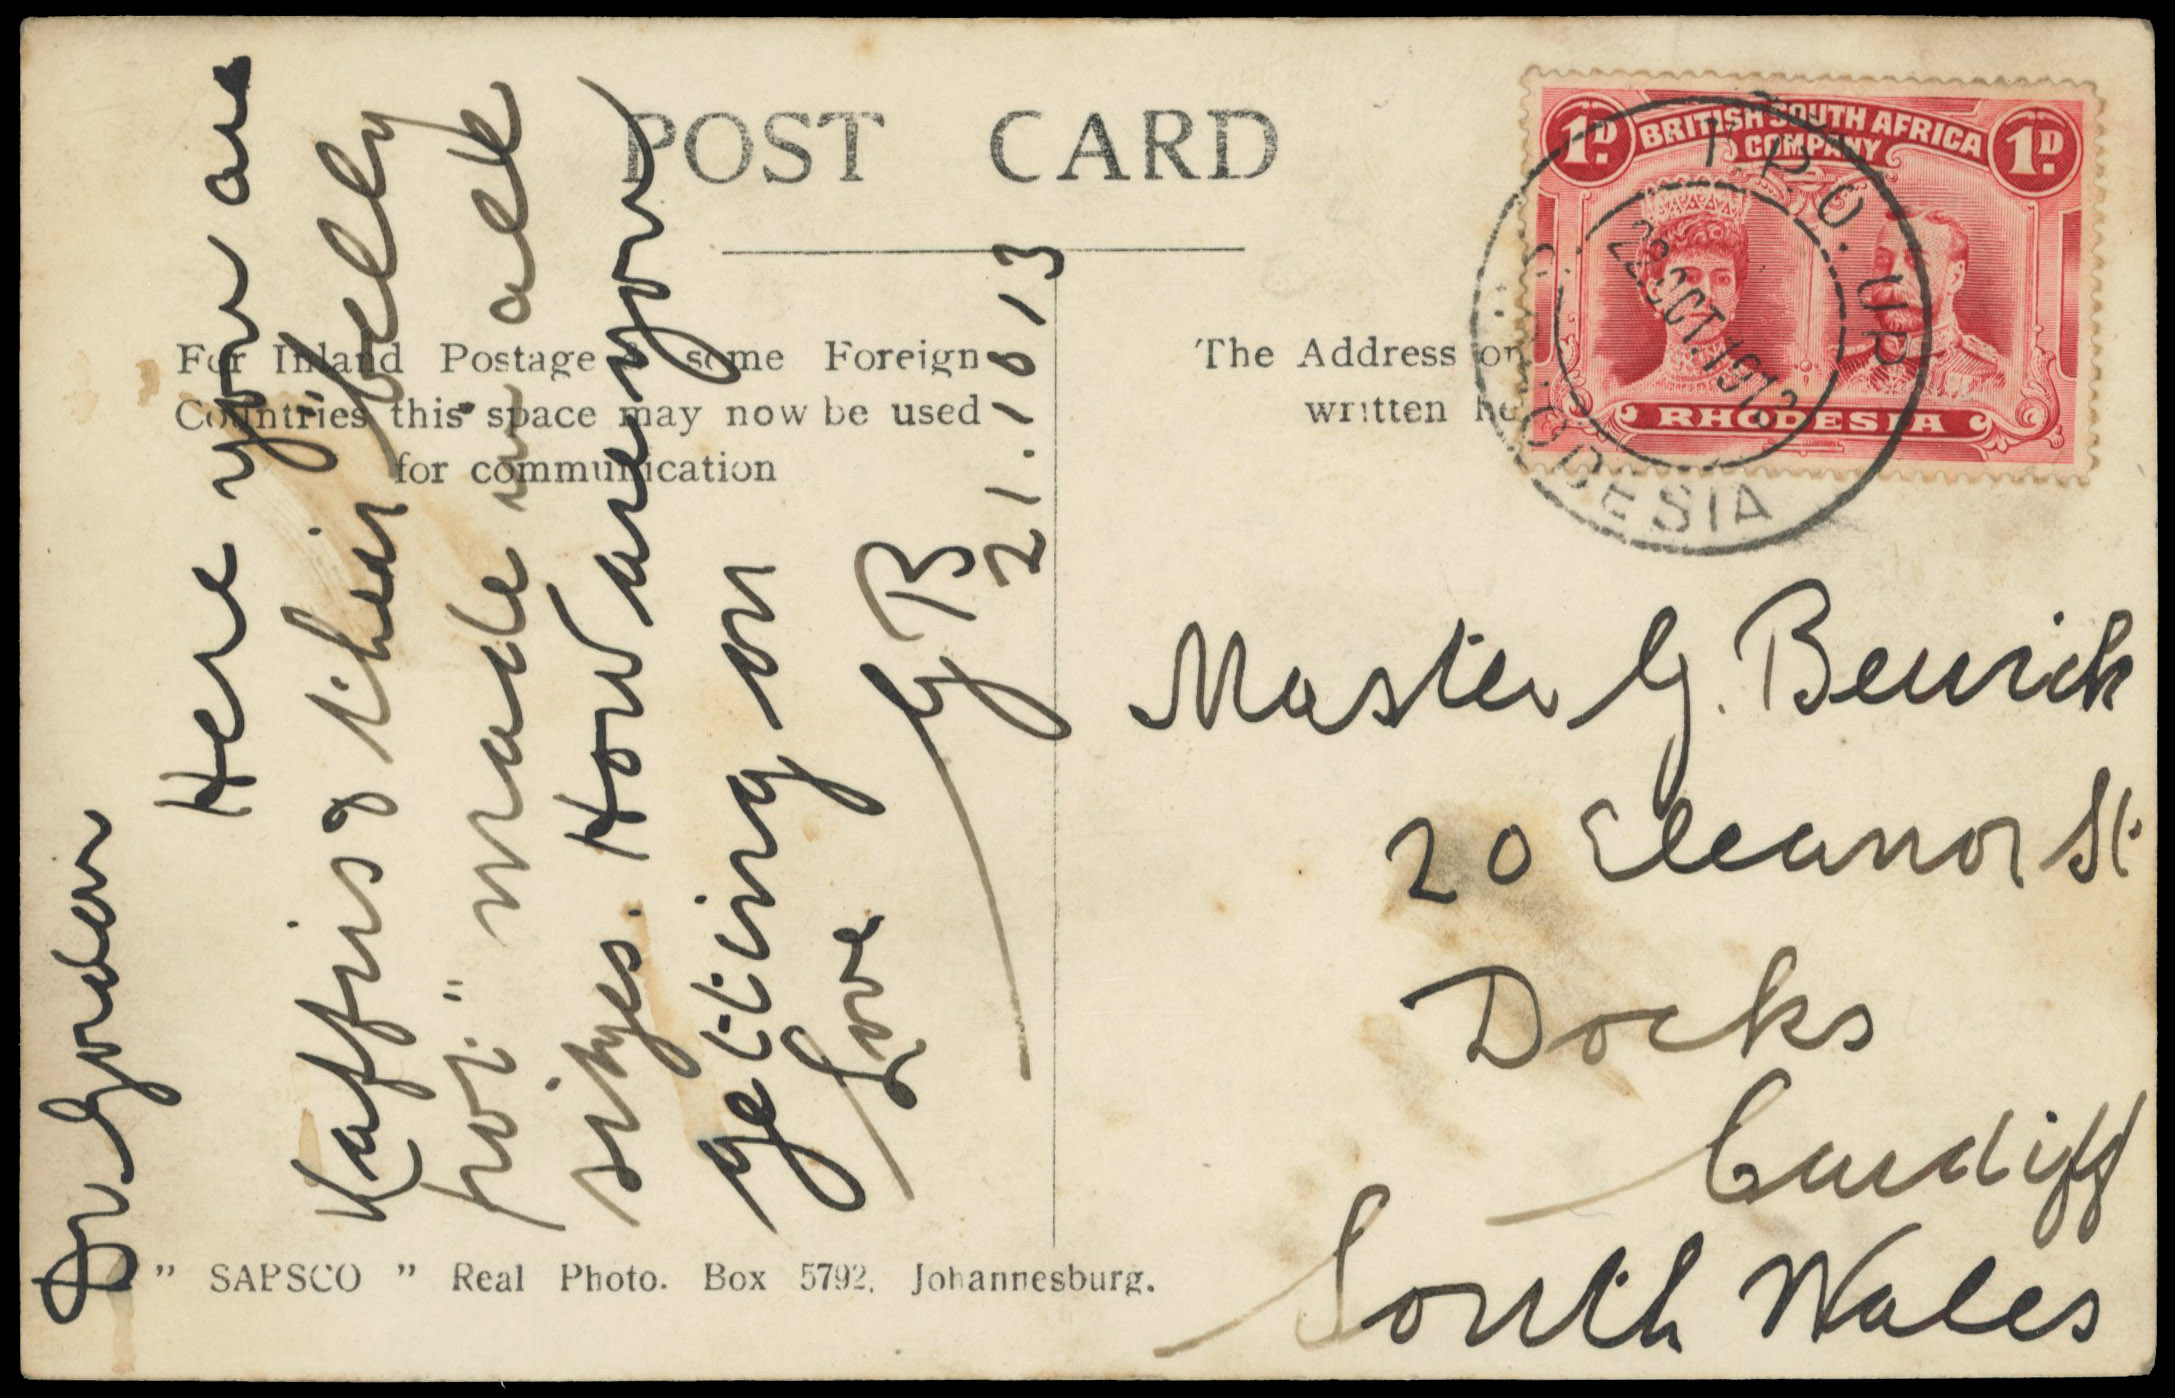 POST CARD
For Inland Postage some Foreign
Countries this space may now be used
for communication
The Address on
written he
" SAPSCO " Real Photo. Box 5792, Johannesburg.
Dr Gordon
Here you are
Kaffirs & their "belly
pot" made in all
sizes. How are you
getting on
Love
GB
21.10.13
Master G. Bewick
20 Eleanor St.
Docks
Cardiff
South Wales
1D. BRITISH SOUTH AFRICA 1D.
COMPANY
RHODESIA
T.P.O. UP
22 OCT. 1913
RHODESIA